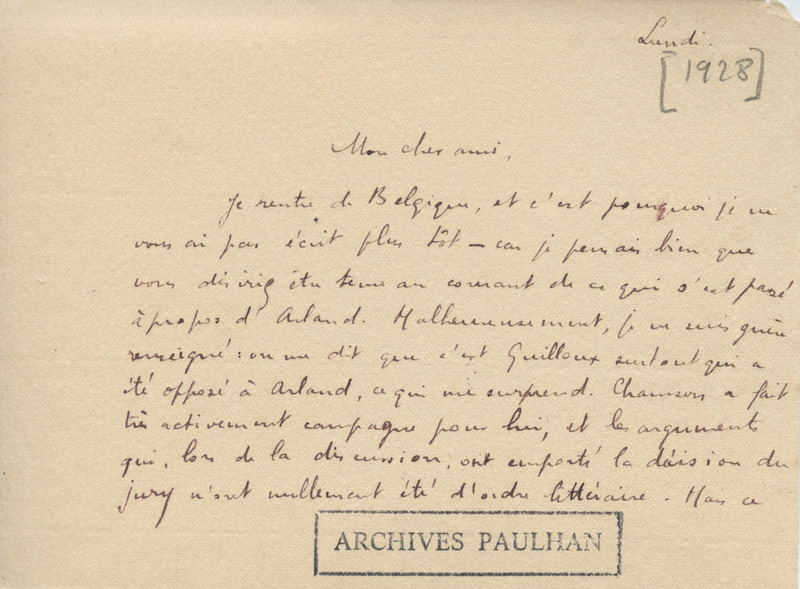 Lundi.
[1928]
Mon cher ami,
Je rentre de Belgique, et c'est pourquoi je ne
vous ai pas écrit plus tôt – car je pensais bien que
vous désiriez être tenu au courant de ce qui s'est passé
à propos d'Arland. Malheureusement, je ne suis guère
renseigné : on me dit que c'est Guilloux surtout qui a
été opposé à Arland, ce qui me surprend. Chamson a fait
très activement campagne pour lui, et les arguments
qui, lors de la discussion, ont emporté la décision du
jury n'ont nullement été d'ordre littéraire. Mais ce
ARCHIVES PAULHAN